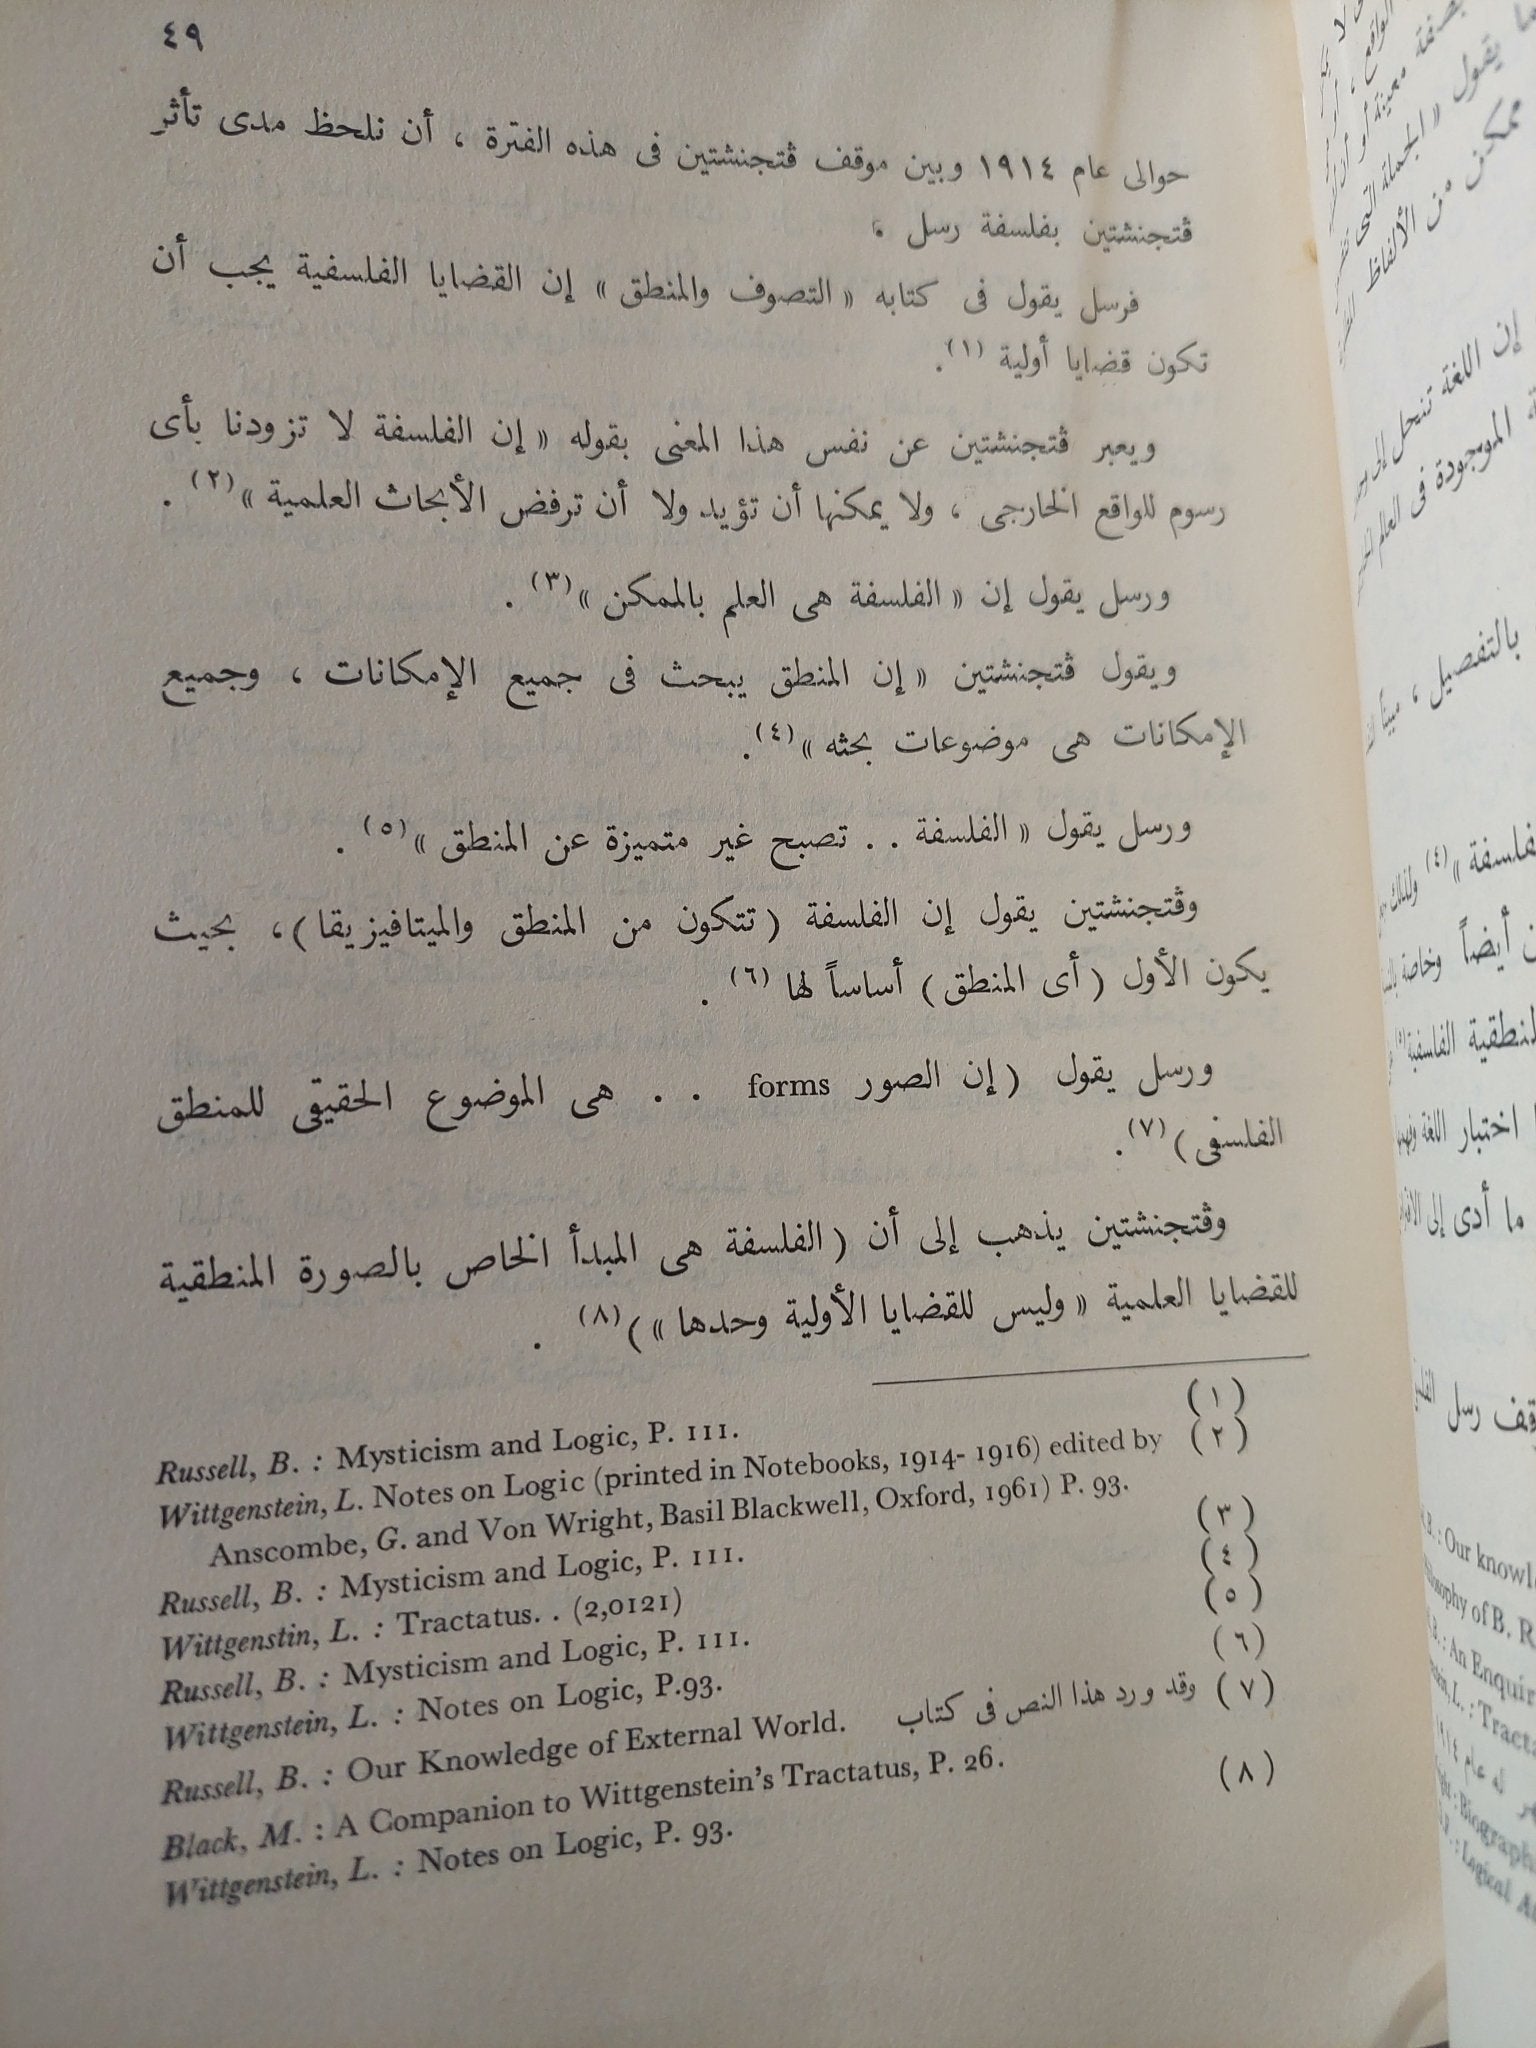 ٤٩
حوالى عام ١٩١٤ وبين موقف ڤتجنشتين فى هذه الفترة ، أن نلحظ مدى تأثر
ڤتجنشتين بفلسفة رسل .
فرسل يقول فى كتابه « التصوف والمنطق » إن القضايا الفلسفية يجب أن
تكون قضايا أولية (١).
ويعبر ڤتجنشتين عن نفس هذا المعنى بقوله « إن الفلسفة لا تزودنا بأى
رسوم للواقع الخارجى ، ولا يمكنها أن تؤيد ولا أن ترفض الأبحاث العلمية »(٢) .
ورسل يقول إن « الفلسفة هى العلم بالممكن »(٣) .
ويقول ڤتجنشتين « إن المنطق يبحث فى جميع الإمكانات ، وجميع
الإمكانات هى موضوعات بحثه »(٤).
ورسل يقول « الفلسفة . . تصبح غير متميزة عن المنطق »(٥) .
وڤتجنشتين يقول إن الفلسفة ( تتكون من المنطق والميتافيزيقا ) ، بحيث
يكون الأول ( أى المنطق ) أساساً لها (٦) .
ورسل يقول ( إن الصور forms . . هى الموضوع الحقيقى للمنطق
الفلسفى )(٧).
وڤتجنشتين يذهب إلى أن ( الفلسفة هى المبدأ الخاص بالصورة المنطقية
للقضايا العلمية « وليس للقضايا الأولية وحدها » )(٨) .
Russell, B. : Mysticism and Logic, P. 111. (١)
Wittgenstein, L. Notes on Logic (printed in Notebooks, 1914- 1916) edited by (٢)
Anscombe, G. and Von Wright, Basil Blackwell, Oxford, 1961) P. 93.
Russell, B. : Mysticism and Logic, P. 111. (٣)
Wittgenstin, L. : Tractatus. . (2,0121) (٤)
Russell, B. : Mysticism and Logic, P. 111. (٥)
Wittgenstein, L. : Notes on Logic, P.93. (٦)
Russell, B. : Our Knowledge of External World. (٧) وقد ورد هذا النص فى كتاب
Black, M. : A Companion to Wittgenstein's Tractatus, P. 26.
Wittgenstein, L. : Notes on Logic, P. 93. (٨)
يقول « الجملة التى
ممكن من الألفاظ
إن اللغة تنحل إلى
الموجودة فى العالم
بالتفصيل ، مبيناً
»(٤) ولذلك
أيضاً وخاصة
الفلسفية
اختبار اللغة
ما أدى إلى
رسل
B. : Our
of B. R
B. : An Enquir
L. : Tracta
له عام
: Biograph
: Logical